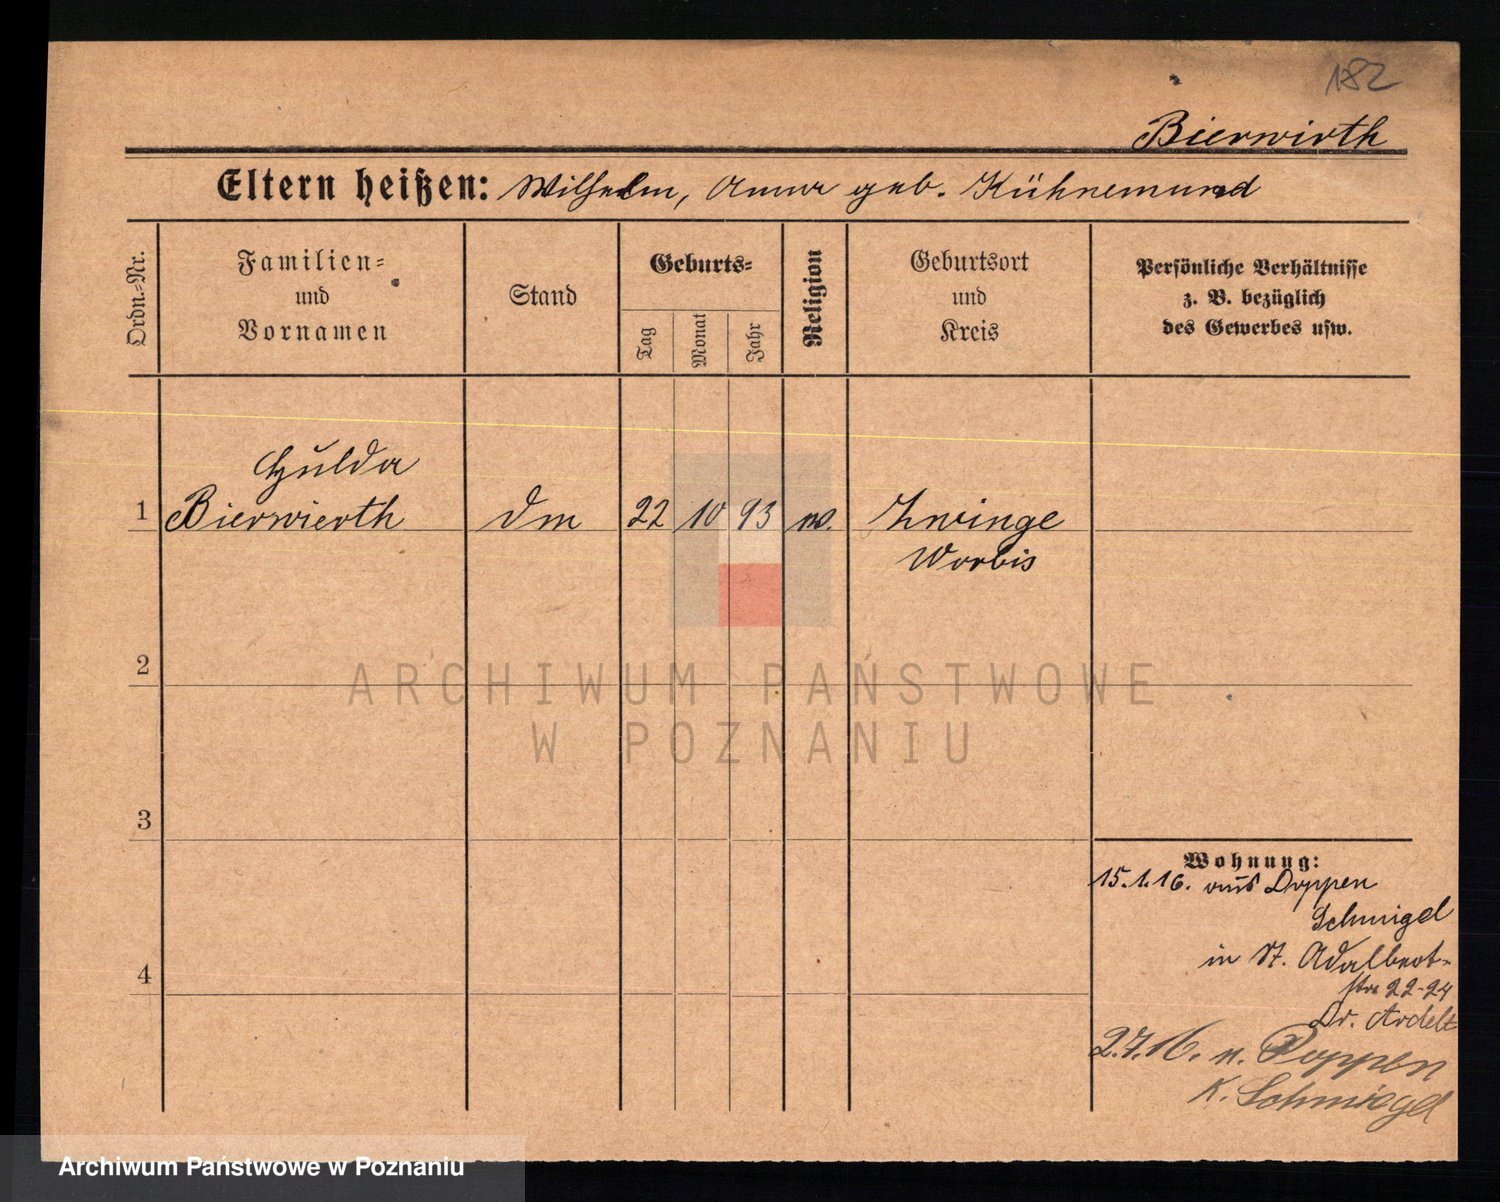 182
Bierwirth
Eltern heißen: Wilhelm, Anna geb. Kühnemund
Ordn.-Nr.
Familien-
und
Vornamen
Stand
Geburts-
Tag
Monat
Jahr
Religion
Geburtsort
und
Kreis
Persönliche Verhältnisse
z. B. bezüglich
des Gewerbes usw.
Hulda
1 Bierwierth Dm 22 10 93 ev. Zwinge
Worbis
2
ARCHIWUM PAŃSTWOWE
W POZNANIU
3
Wohnung:
15.1.16. aus Poppen
Schmigel
in St. Adalbert-
str 22-24
Dr. Ardelt
2.7.16. n. Poppen
K. Schmiegel
4
Archiwum Państwowe w Poznaniu